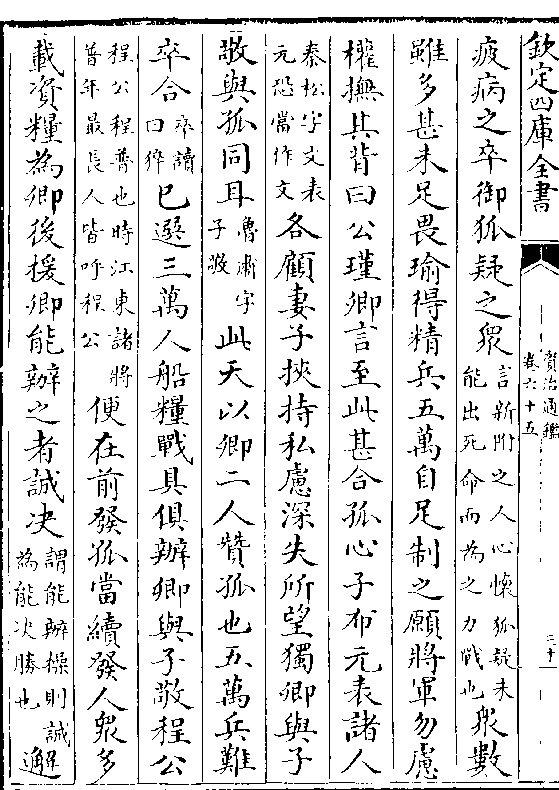 欽定四庫全書
資治通鑑
卷六十五
二十
疲病之卒御狐疑之衆言新附之人心懷狐疑未能出死命而為之力戰也衆數
雖多甚未足畏瑜得精兵五萬自足制之願將軍勿慮
權撫其背曰公瑾卿言至此甚合孤心子布元表諸人
秦松字文表元恐當作文各顧妻子挾持私慮深失所望獨卿與子
敬與孤同耳魯肅字子敬此天以卿二人贊孤也五萬兵難
卒合卒讀曰猝已選三萬人船糧戰具俱辦卿與子敬程公
程公程普也時江東諸將普年最長人皆呼程公便在前發孤當續發人衆多
載資糧為卿後援卿能辦之者誠决謂能辦操則誠為能决勝也邂